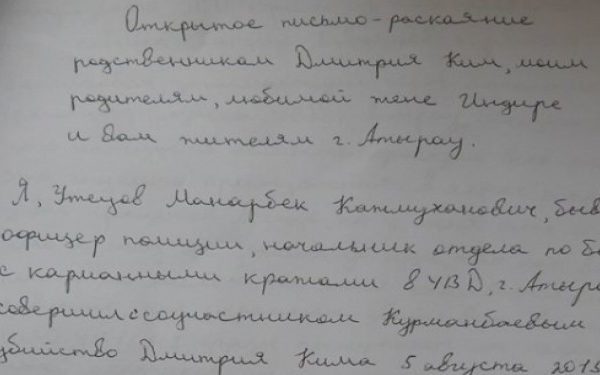 Открытое письмо-раскаяние
родственникам Дмитрия Ким, моим
родителям, любимой жене Индире
и вам жителям г. Атырау.
Я, Утецов Манарбек Катмуханович, быв
офицер полиции, начальник отдела по бо
с карманными кражами в УВД, г. Атыра
совершил с соучастником Курманбаевым
убийство Дмитрия Кима 5 августа 201